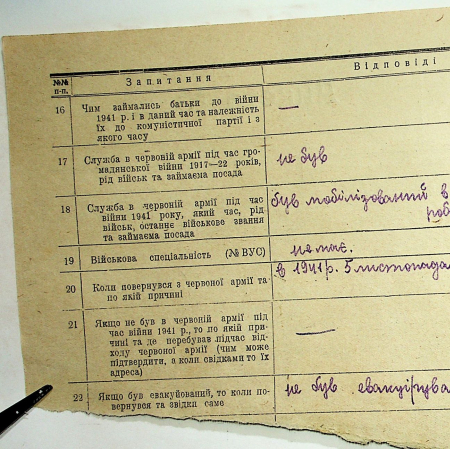 №№ п-п.
Запитання
Відповіді
16 Чим займались батьки до війни
1941 р. і в даний час та належність
їх до комуністичної партії і з
якого часу
—
17 Служба в червоній армії під час гро-
мадянської війни 1917—22 років,
рід військ та займаєма посада
не був
18 Служба в червоній армії під час
війни 1941 року, який час, рід
військ, останнє військове звання
та займаєма посада
був мобілізований в
роб
19 Військова спеціальність (№ ВУС)
немає.
20 Коли повернувся з червоної армії та
по якій причині
в 1941 р. 5 листопада
21 Якщо не був в червоній армії під
час війни 1941 р., то по якій при-
чині та де перебував підчас від-
ходу червоної армії (чим може
підтвердити, а коли свідками то їх
адреса)
—
22 Якщо був евакуйований, то коли по-
вернувся та звідки саме
не був евакуірува